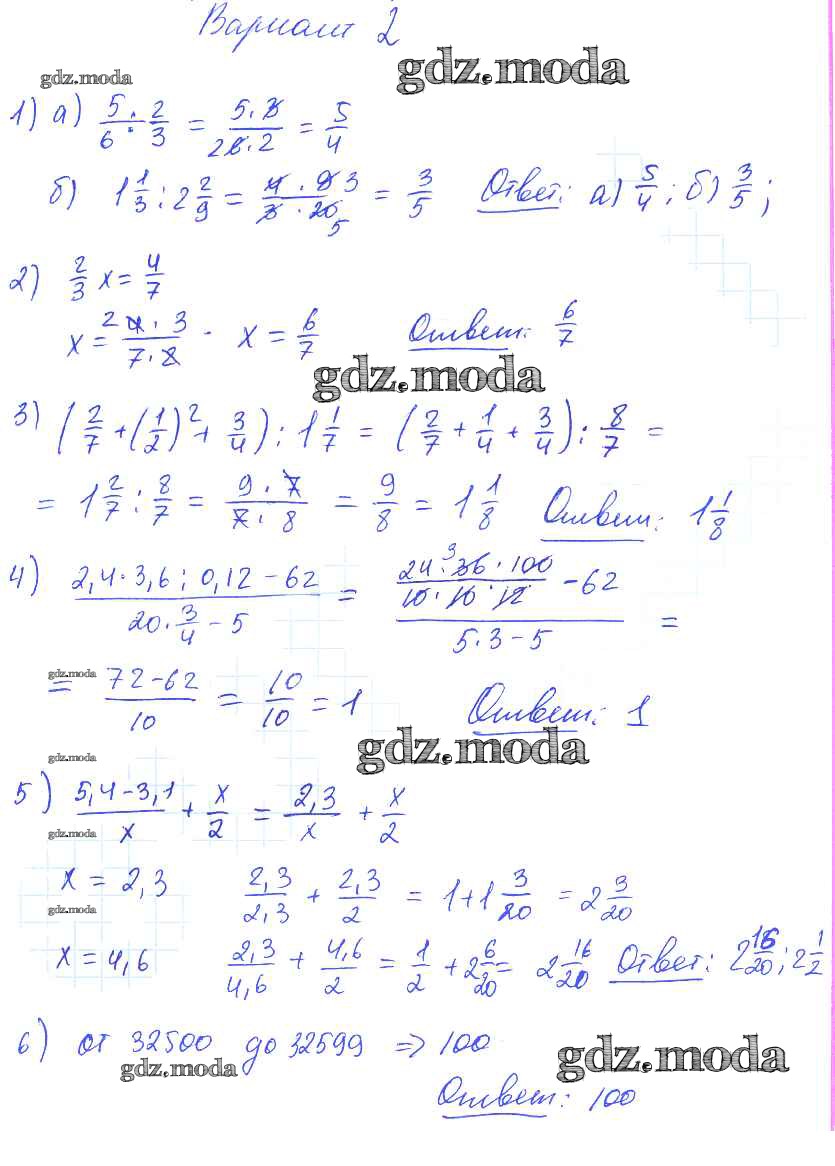 Вариант 2
gdz.moda
gdz.moda
1) а) 5/6 : 2/3 = 5·3/2 6·2 = 5/4
б) 1 1/3 : 2 2/9 = 4·9 3/3·20 5 = 3/5 Ответ: а) 5/4; б) 3/5;
2) 2/3 x = 4/7
x = 2 4·3/7·2 · x = 6/7 Ответ: 6/7
gdz.moda
3) (2/7 + (1/2)² + 3/4) : 1 1/7 = (2/7 + 1/4 + 3/4) : 8/7 =
= 1 2/7 : 8/7 = 9·7/7·8 = 9/8 = 1 1/8 Ответ: 1 1/8
4) 2,4·3,6 : 0,12 – 62/20·3/4 – 5 = 24·36 3·100/10·10·12 – 62/5·3–5 =
gdz.moda
= 72–62/10 = 10/10 = 1 Ответ: 1
gdz.moda
gdz.moda
5) 5,4–3,1/x + x/2 = 2,3/x + x/2
gdz.moda
x = 2,3 2,3/2,3 + 2,3/2 = 1+1 3/20 = 2 3/20
gdz.moda
x = 4,6 2,3/4,6 + 4,6/2 = 1/2 + 2 6/20 = 2 16/20 Ответ: 2 16/20; 2 1/2
6) от 32500 до 32599 => 100
gdz.moda
gdz.moda
Ответ: 100